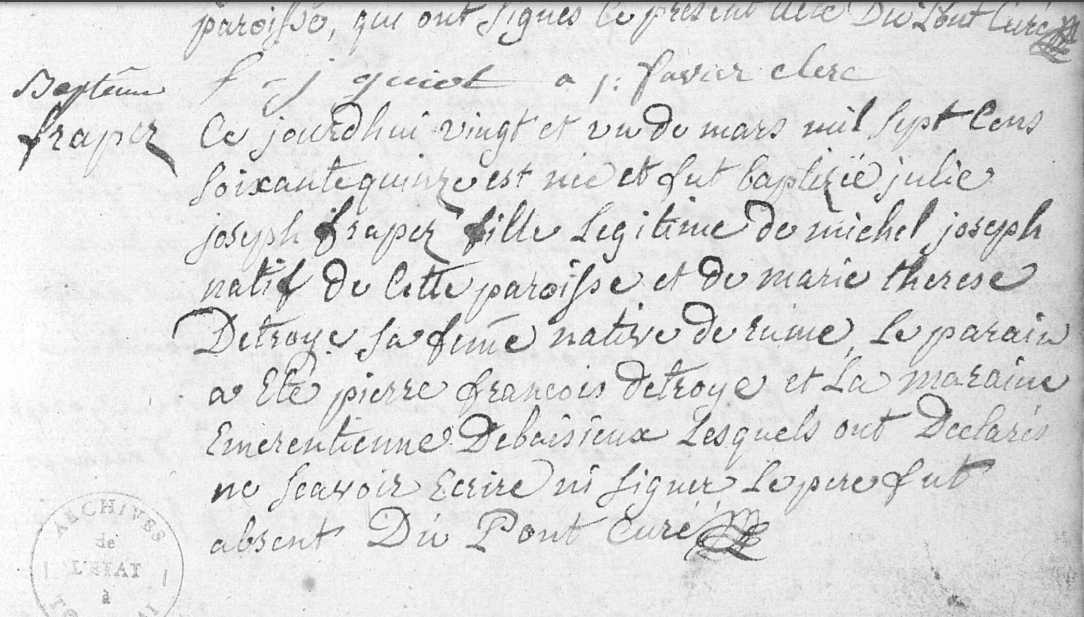 paroisse, qui ont signés le present acte Du Pont Curé
f j quiot a j: favier clerc
Baptême
frapez
Ce jourdhui vingt et un de mars mil sept Cens
soixante quinze est née et fut baptizée julie
joseph frapez fille Legitime de michel joseph
natif de Cette paroisse et de marie therese
Detroye sa feme native de rume, Le parain
a Eté pierre francois detroye et La maraine
Emerentienne Debaisieux Lesquels ont Declarés
ne scavoir Ecrire ni signer Le pere fut
absent Du Pont Curé
ARCHIVES
de
L'ETAT
à